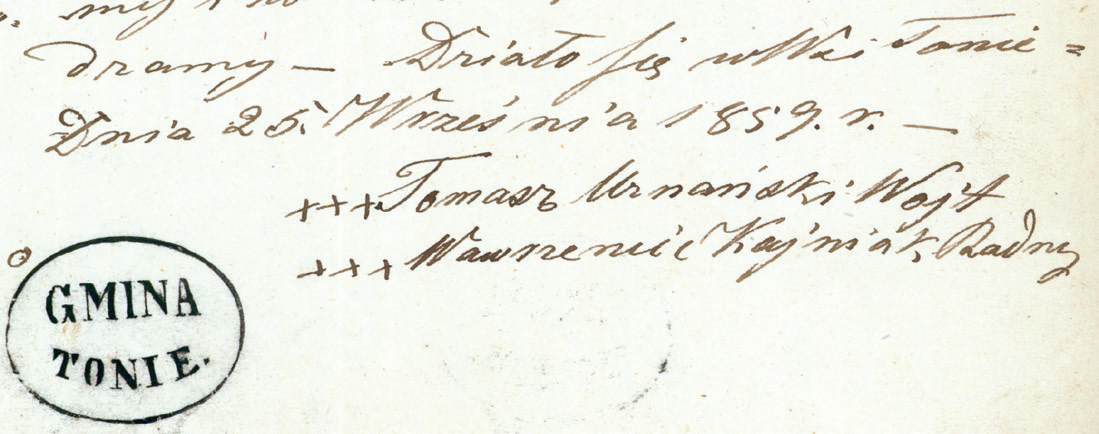 dramy — Działo się w Wsi Tonie =
Dnia 25. Września 1859. r. —
+++ Tomasz Urnański Wojt
+++ Wawrzeniec Kajniak, Radny
GMINA
TONIE.